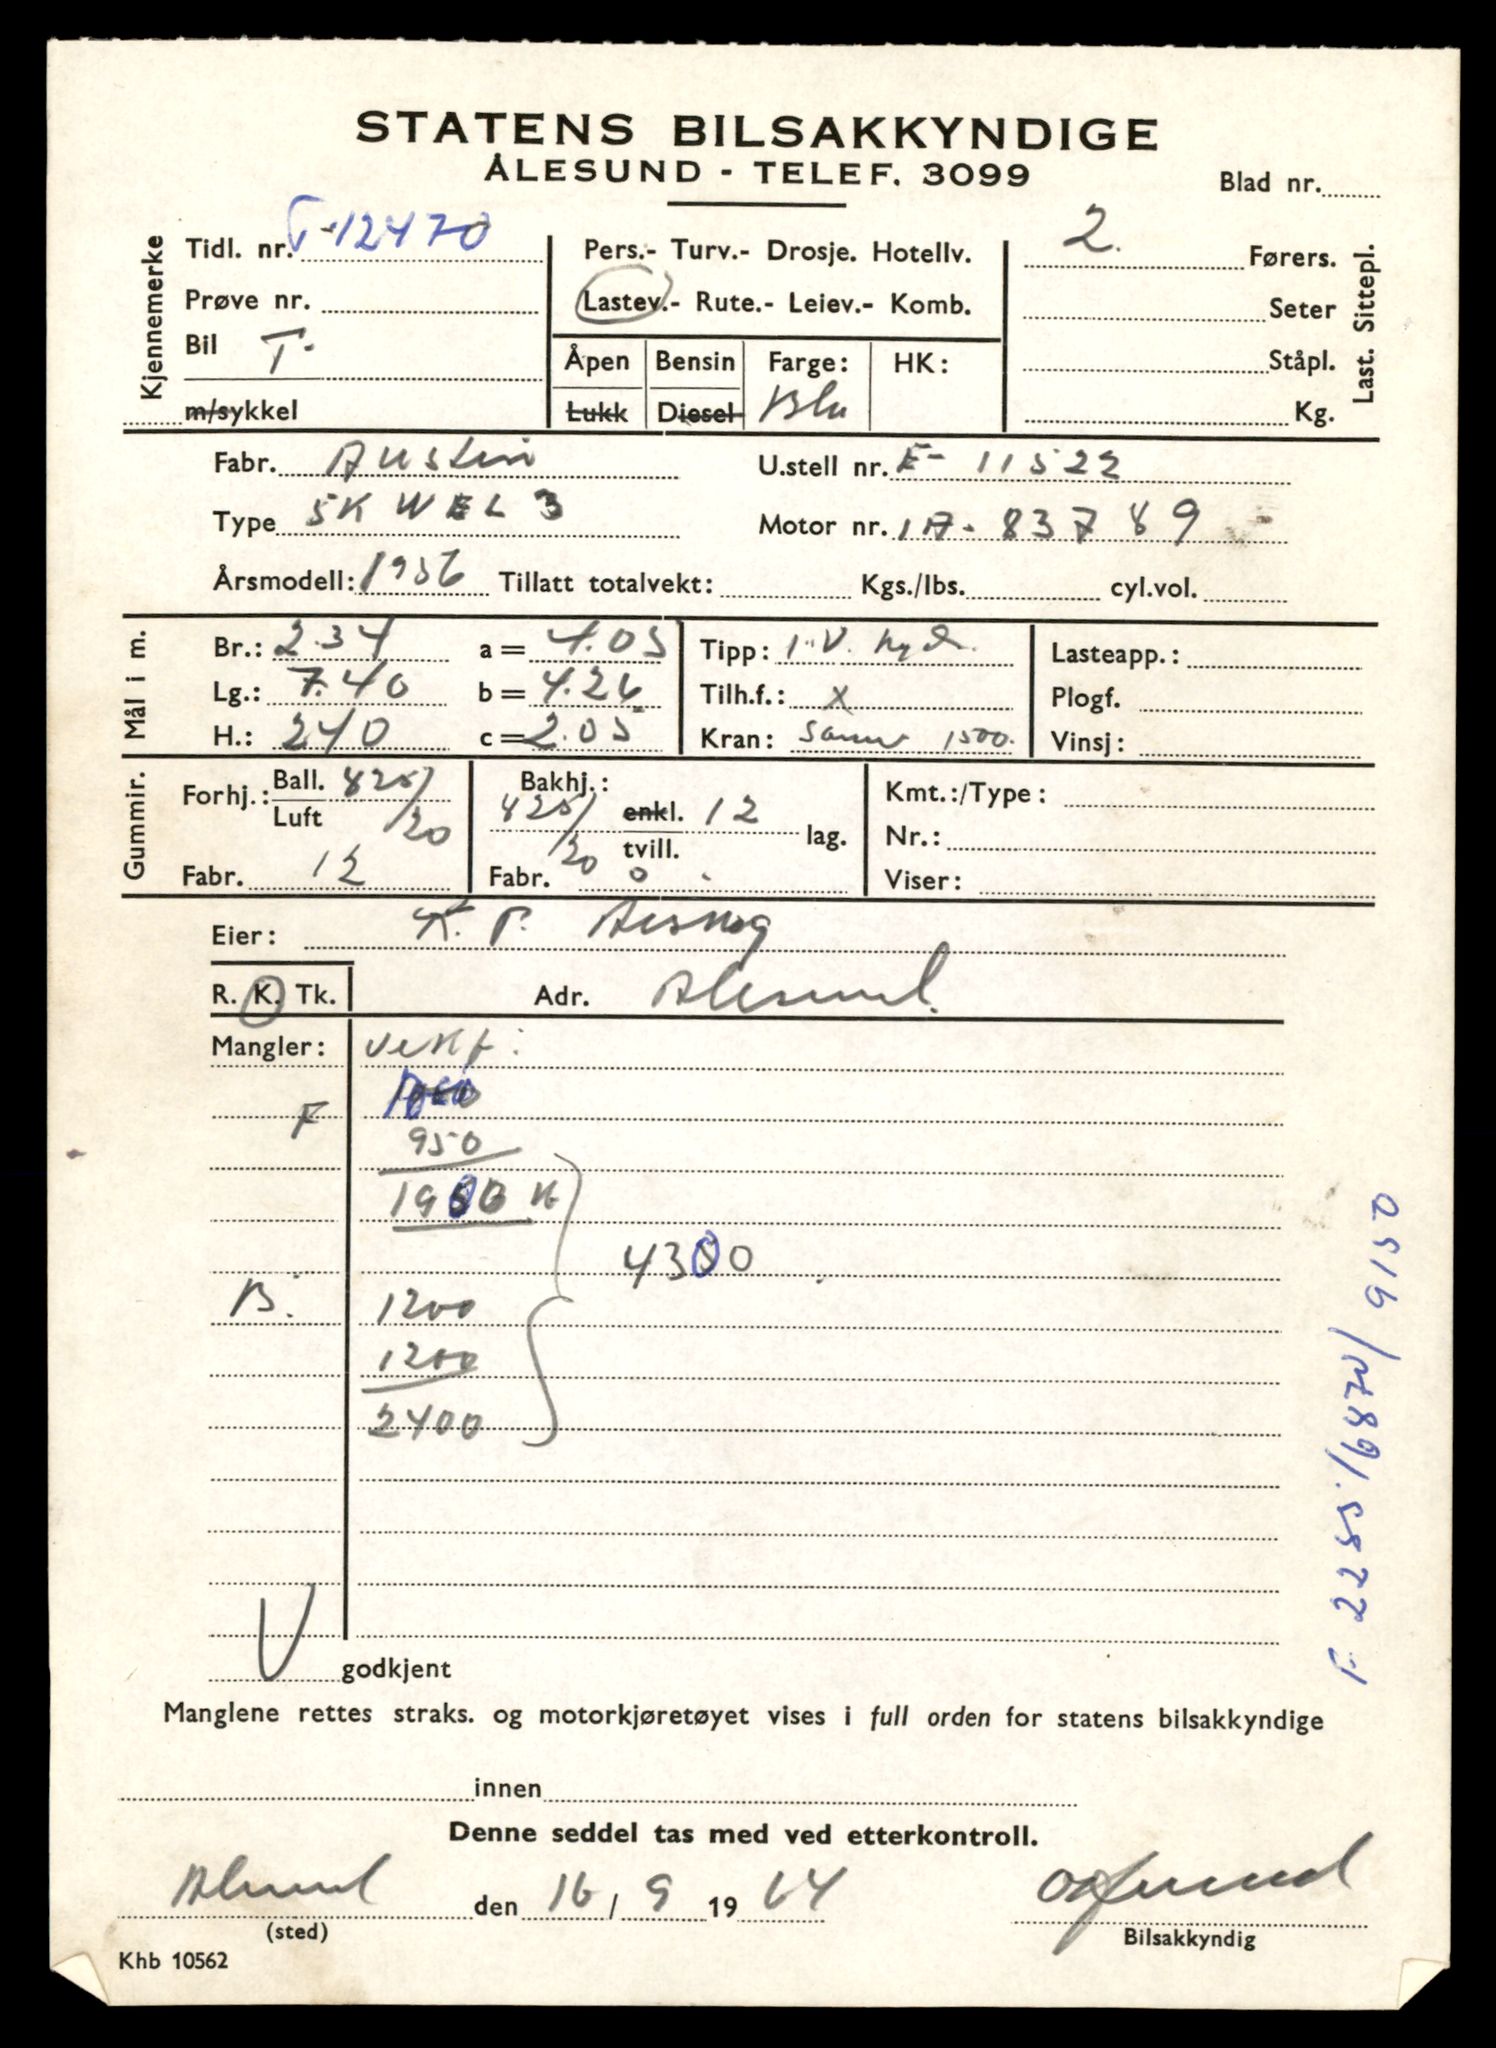 STATENS BILSAKKYNDIGE
ÅLESUND - TELEF. 3099
Blad nr.
Kjennemerke
Tidl. nr. T-12470
Prøve nr.
Bil T-
m/sykkel
Pers.- Turv.- Drosje. Hotellv.
Lastev.- Rute.- Leiev.- Komb.
Åpen Bensin Farge: HK:
Lukk Diesel Blå
2. Førers.
Seter
Ståpl.
Kg.
Last. Sittepl.
Fabr. Austin U.stell nr. E- 11522
Type 5K WEL 3 Motor nr. 1A- 83789
Årsmodell: 1956 Tillatt totalvekt: Kgs./lbs. cyl.vol.
Mål i m.
Br.: 2.34 a = 4.05 Tipp: 1-V. hyd. Lasteapp.:
Lg.: 7.40 b = 4.26 Tilh.f.: X Plogf.
H.: 240 c = 2.05 Kran: 1500. Vinsj:
Gummir.
Forhj.: Ball. 825/20 Bakhj.: Kmt.:/Type:
Luft 825/20 enkl. 12 lag. Nr.:
tvill.
Fabr. 12 Fabr. Viser:
Eier: K. P.
R. K. Tk. Adr. Ålesund.
Mangler: vekt:
F
950
1900 K
4300
B. 1200
1200
2400
V godkjent
F 2255/6870/9150
Manglene rettes straks. og motorkjøretøyet vises i full orden for statens bilsakkyndige
innen
Denne seddel tas med ved etterkontroll.
Ålesund den 16/9 1964
(sted) Bilsakkyndig
Khb 10562